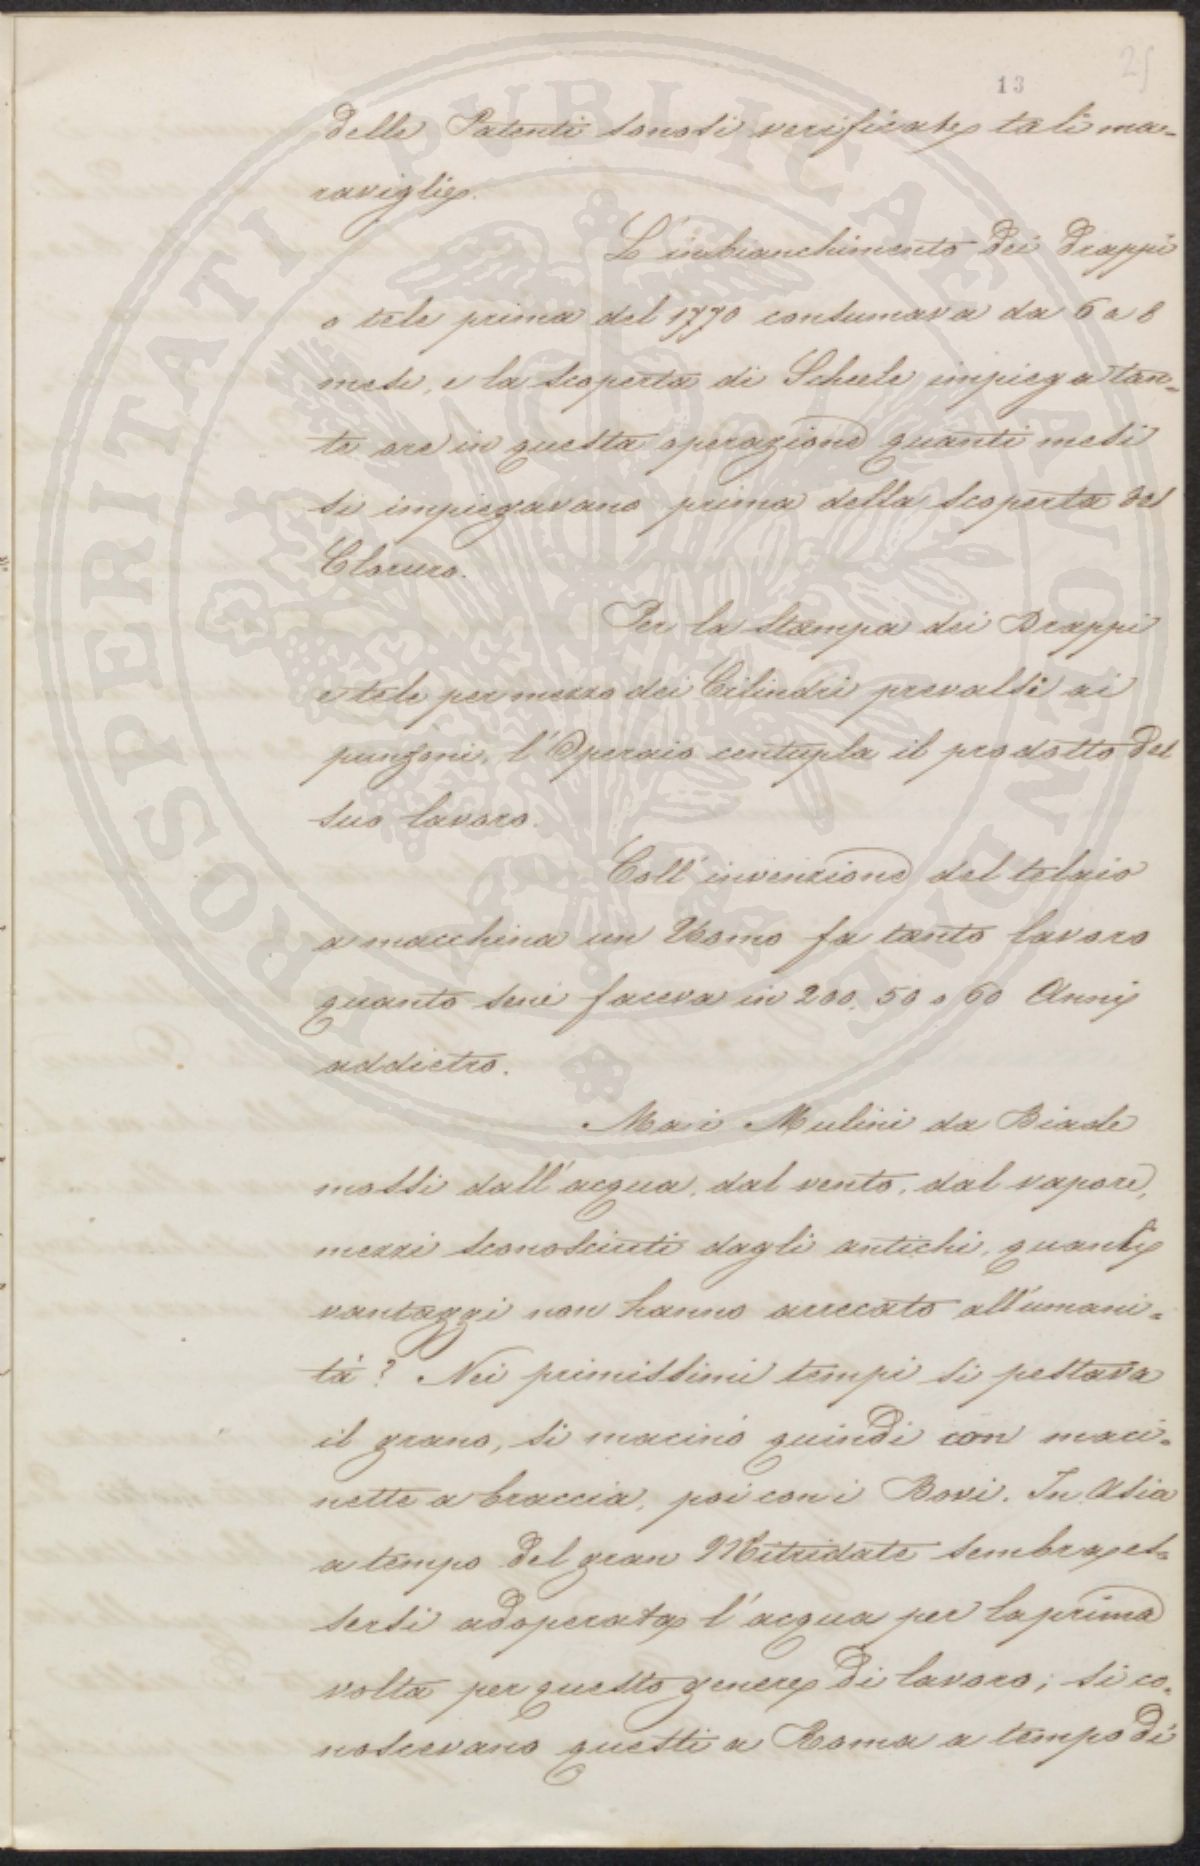 13
25
delle Patenti sonosi verificate tali ma-
raviglie.
L'imbianchimento dei Drappi
o tele prima del 1770 consumava da 6 a 8
mesi, e la scoperta di Scheele impiega tan-
te ore in questa operazione quanti mesi
si impiegavano prima della scoperta del
Cloruro.
Per la stampa dei Drappi
e tele per mezzo dei Cilindri prevalsi ai
punzoni, l'Operaio centupla il prodotto del
suo lavoro.
Coll'invenzione del telaio
a macchina un Uomo fa tanto lavoro
quanto sene faceva in 200, 50 o 60 Anni
addietro.
Ma i Mulini da Biade
mossi dall'acqua, dal vento, dal vapore,
mezzi sconosciuti dagli antichi, quanti
vantaggi non hanno arrecato all'umani-
tà? Nei primissimi tempi si pestava
il grano, si macinò quindi con maci-
nette a braccia, poi con i Bovi. In Asia
a tempo del gran Mitridate sembra es-
sersi adoperata l'acqua per la prima
volta per questo genere di lavoro; si co-
noscevano questi a Roma a tempo di
PROSPERITATI PVBLICAE AVGENDAE